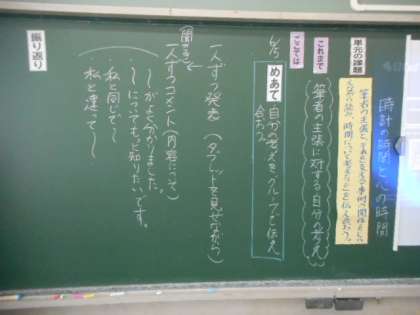 時計の時間と心の時間
単元の課題
筆者の主張と、それを支える事例の関係をとらえ
これまで
ここでは
筆者の主張に対する自分の考え
めあて
自分の考えをグループで伝え
合おう。
一人ずつ発表(タブレットを見せながら)
聞き合う
一人ずつコメント(内容について)
・〜がよく分かりました。
・〜についてもっと知りたいです。
・私と同じで〜
・私と違って〜
振り返り